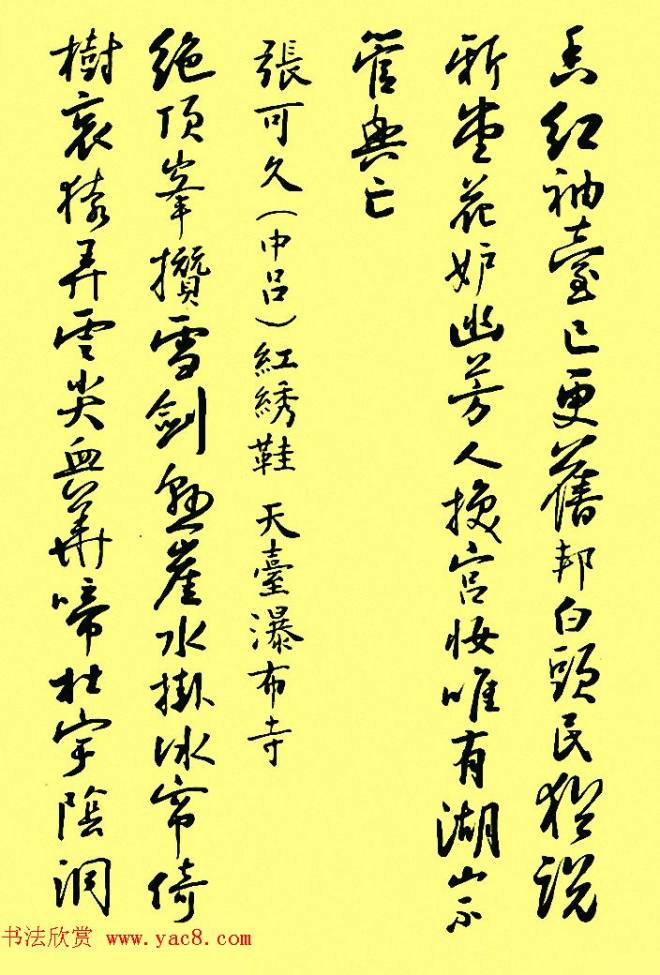 香红袖臺已更舊邦白頭民猶說
新堂花妒幽芳人換宮妝唯有湖山不
管興亡
張可久（中吕）紅綉鞋 天臺瀑布寺
絶頂峯攢雪劍懸崖水掛冰帘倚
樹哀猿弄雲尖血華啼杜宇陰洞
书法欣赏 www.yac8.com